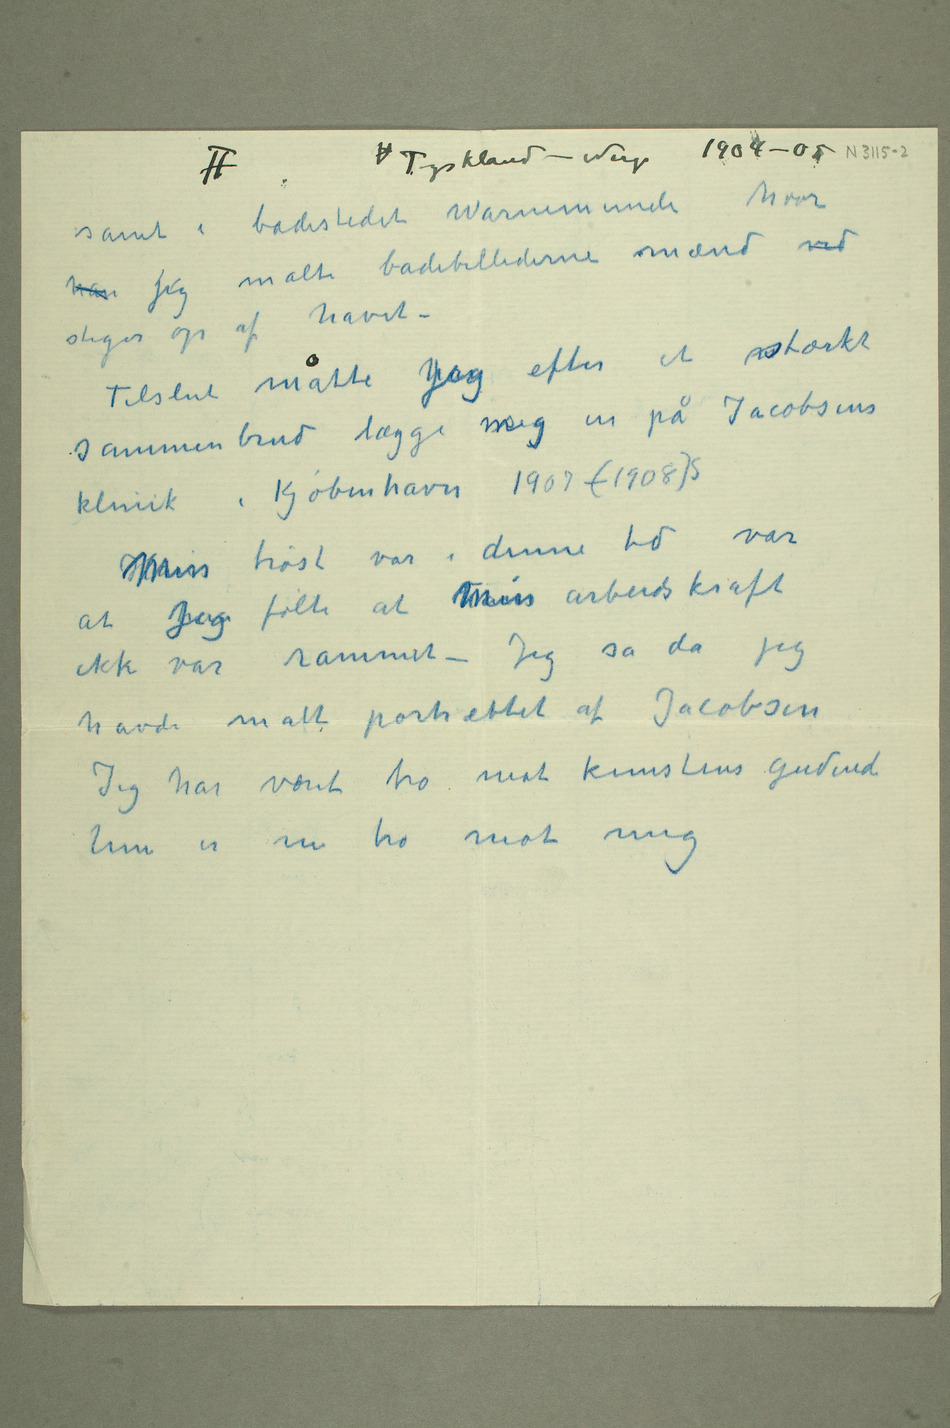 II Tyskland – Norge 1904–05 N 3115-2
samt i badestedet Warnemünde hvor
han jeg malte badebillederne mænd ved
stiger op af havet –
Tilslut måtte jeg efter et stærkt
sammenbrud lægge meg in på Jacobsens
klinik i Kjøbenhavn 1907 (1908)
Min trøst var i denne tid var
at jeg følte at min arbeidskraft
ikke var rammet – Jeg sa da jeg
havde malt portrættet af Jacobsen
Jeg har været tro mot kunstens gudind
hun er nu tro mot mig